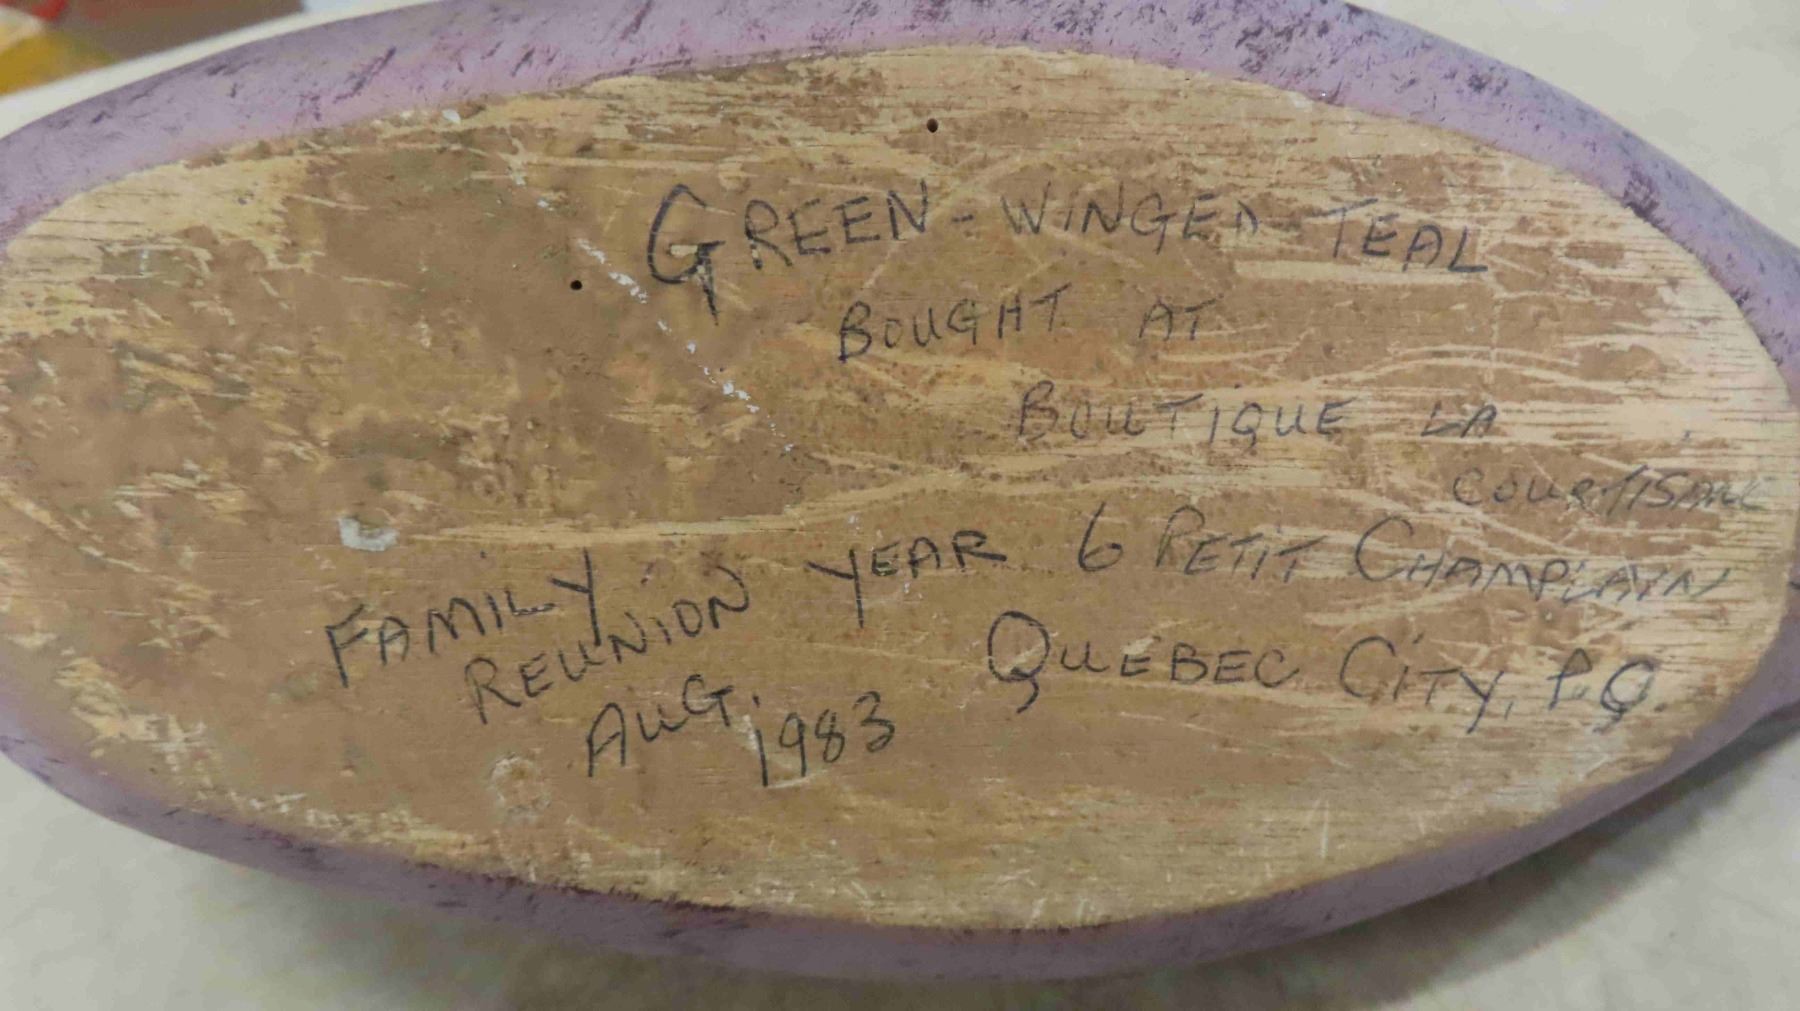 GREEN-WINGED TEAL
BOUGHT AT
BOUTIQUE LA
COURTISANE
6 PETIT CHAMPLAIN
QUEBEC CITY, P.Q.
FAMILY
REUNION YEAR
AUG. 1983